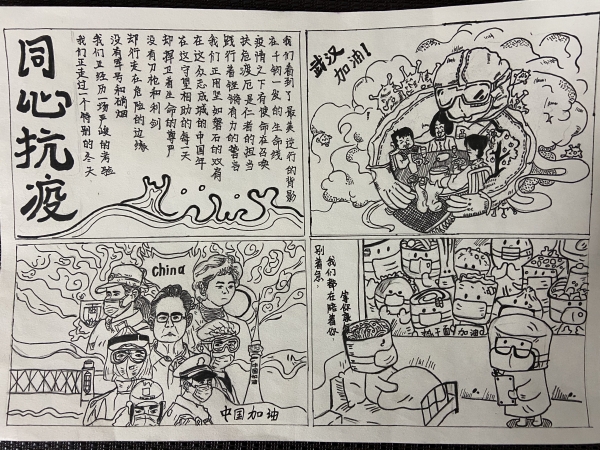 同心抗疫
我们正走过一个特别的冬天
我们正经历一场严峻的考验
没有军号和硝烟
却行走在危险的边缘
没有刀枪和利剑
却捍卫着生命的尊严
在这守望相助的每一天
在这众志成城的中国年
我们正用坚如磐石的双肩
践行着铿锵有力的誓言
扶危渡厄是仁者的担当
疫情之下有使命在召唤
在千钧一发的生命线
我们看到了最美逆行的背影
武汉
加油!
China
中国加油
别着急:
我们都在陪着你
等你康
热干面加油